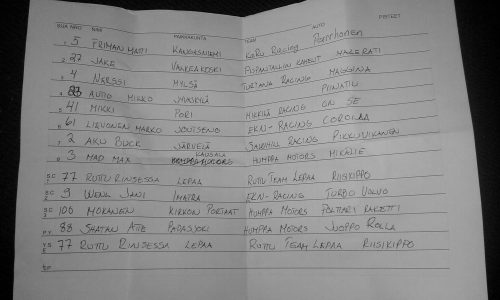 NIMI PAIKKAKUNTA TEAM AUTO PISTEET
1 5 FRIMAN MATI KANGASNIEMI KORO RACING Porrhonen
2 27 JAKE VANKEAKOSKI PISPANTALLIN KAHEUT MASERATI
3 4 NARSSI MYLSÄ TURTANA RACING MAGGINA
4 AUTIO MIKKO JYVÄSKYLÄ PIINATTU
5 41 MIKKI PORI MIKKILÄ RACING ON SE
6 61 LIQUONEN MARKO JOUTSENO EKN-RACING COROLLA
7 2 AKU BUCK JÄRVELÄ RACING PIKKUVIKANEN
8 3 MAD MAX KAUSALA HUMPPA MOTORS
SC 1 77 RUTTU RINSESSA LEPAA RUTTU TEAM LEPAA RIISIKIPPO
SC 2 9 WENG JANI IMATRA EKN-RACING TURBO VOLVO
SC 3 100 MOKANEN KIRKON PORTAAT HUMPPA MOTORS POLTTARI RAKETTI
PY 88 SHATAN ATTE PADASJOKI HUMPPA MOTORS JUOPPO ROLLA
YS 77 RUTTU RINSESSA LEPAA RUTTU TEAM LEPAA RIISIKIPPO